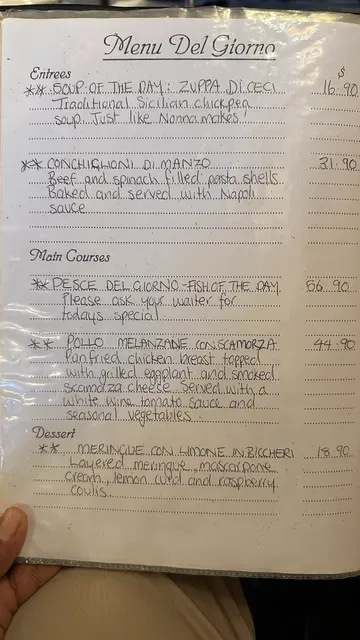 Menu Del Giorno
$
Entrees
** SOUP OF THE DAY: ZUPPA DI CECI 16.90
Traditional Sicilian chickpea
soup. Just like Nonna makes!
** CONCHIGLIONI DI MANZO 31.90
Beef and spinach filled pasta shells.
Baked and served with Napoli
sauce
Main Courses
** PESCE DEL GIORNO - FISH OF THE DAY 56.90
Please ask your waiter for
todays special
** POLLO MELANZANE CON SCAMORZA 44.90
Panfried chicken breast topped
with grilled eggplant and smoked
scamorza cheese. Served with a
white wine tomato sauce and
seasonal vegetables.
Dessert
** MERINGUE CON LIMONE IN BICCHERI 18.90
Layered meringue, mascarpone
cream, lemon curd and raspberry
coulis.